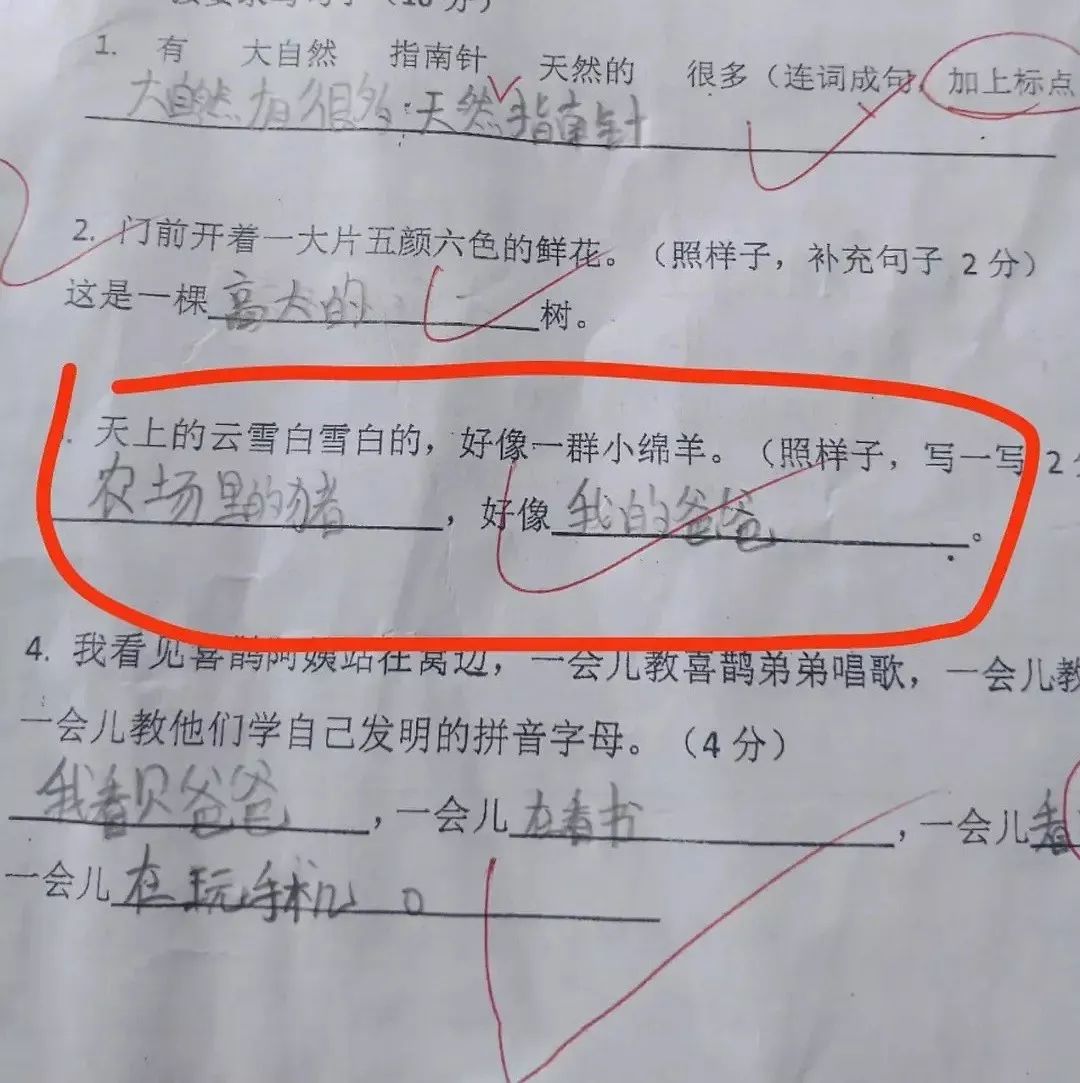 （10分）
1. 有 大自然 指南针 天然的 很多（连词成句，加上标点
大自然有很多天然指南针
2. 门前开着一大片五颜六色的鲜花。（照样子，补充句子 2分）
这是一棵高大的树。
. 天上的云雪白雪白的，好像一群小绵羊。（照样子，写一写 2分
农场里的猪，好像我的爸爸。
4. 我看见喜鹊阿姨站在窝边，一会儿教喜鹊弟弟唱歌，一会儿教
一会儿教他们学自己发明的拼音字母。（4分）
我看贝爸爸，一会儿在看书，一会儿看
一会儿在玩手机。